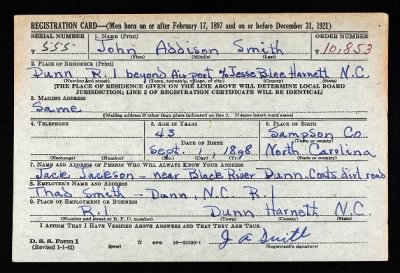 REGISTRATION CARD—(Men born on or after February 17, 1897 and on or before December 31, 1921)
SERIAL NUMBER 1. NAME (Print) ORDER NUMBER
555 John Addison Smith 10,853
(First) (Middle) (Last)
2. PLACE OF RESIDENCE (Print)
Dunn R.1 beyond Airport % Jesse B Lee Harnett N.C.
(Number and street) (Town, township, village, or city) (County) (State)
[THE PLACE OF RESIDENCE GIVEN ON THE LINE ABOVE WILL DETERMINE LOCAL BOARD
JURISDICTION; LINE 2 OF REGISTRATION CERTIFICATE WILL BE IDENTICAL]
3. MAILING ADDRESS
Same
[Mailing address if other than place indicated on line 2. If same insert word same]
4. TELEPHONE 5. AGE IN YEARS 6. PLACE OF BIRTH
43 Sampson Co.
DATE OF BIRTH (Town or county)
Sept. 1 1898 North Carolina
(Exchange) (Number) (Mo.) (Day) (Yr.) (State or country)
7. NAME AND ADDRESS OF PERSON WHO WILL ALWAYS KNOW YOUR ADDRESS
Jack Jackson - near Black River Dunn. Coats dirt road
8. EMPLOYER'S NAME AND ADDRESS
Thad Smith - Dunn, N.C. R.1
9. PLACE OF EMPLOYMENT OR BUSINESS
R.1 Dunn Harnett N.C.
(Number and street or R. F. D. number) (Town) (County) (State)
I AFFIRM THAT I HAVE VERIFIED ABOVE ANSWERS AND THAT THEY ARE TRUE.
D. S. S. Form 1
(Revised 1-1-42) (over) GPO 16—21630-1 J A Smith
(Registrant's signature)